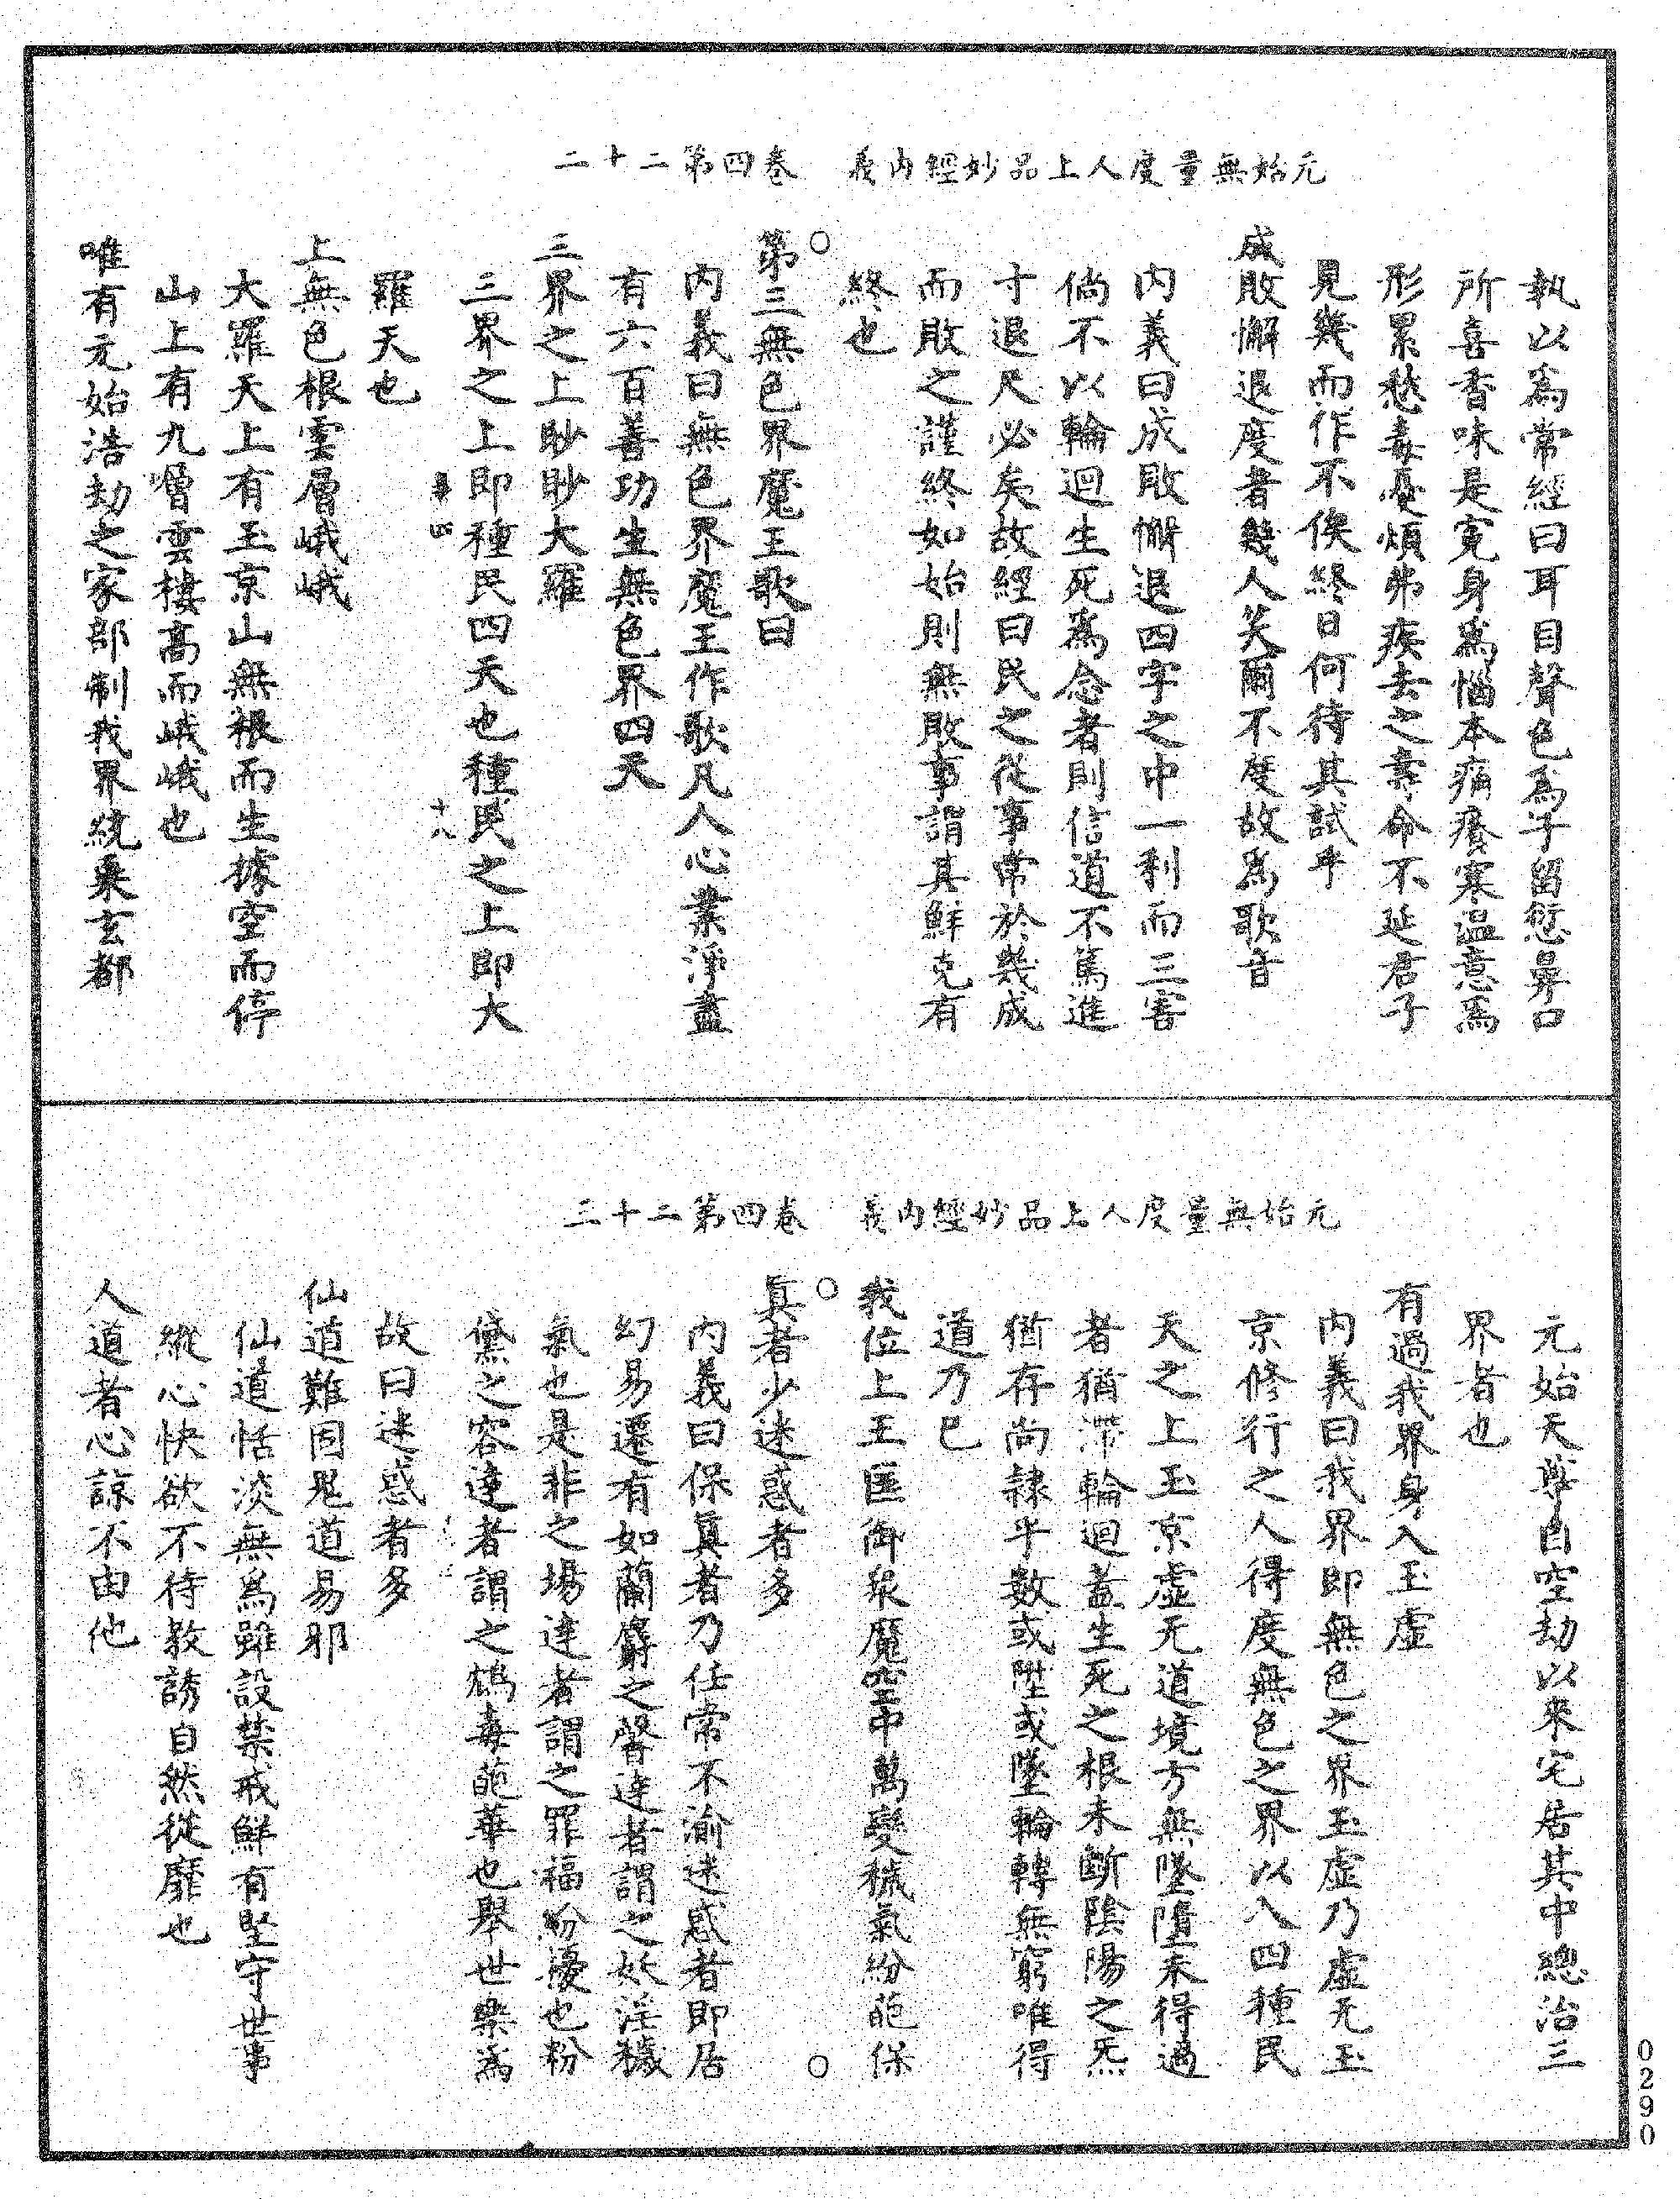 元始無量度人上品妙經內義　卷四第二十二
執以爲常經曰耳目聲色爲子留愆鼻口
所喜香味是寃身爲惱本痛癢寒温意爲
形累愁毒憂煩弗疾去之壽命不延君子
見幾而作不俟終日何待其試乎
成敗懈退度者幾人笑爾不度故爲歌音
內義曰成敗懈退四字之中一利而三害
倘不以輪迴生死爲念者則信道不篤進
寸退尺必矣故經曰民之從事常於幾成
而敗之謹終如始則無敗事謂其鮮克有
終也
○第三無色界魔王歌曰
內義曰無色界魔王作歌凡人心業淨盡
有六百善功生無色界四天
三界之上眇眇大羅
三界之上即種民四天也種民之上即大
四　十八
羅天也
上無色根雲層峨峨
大羅天上有玉京山無根而生據空而停
山上有九層雲樓高而峨峨也
唯有元始浩劫之家部制我界統乘玄都
元始無量度人上品妙經內義　卷四第二十三
元始天尊自空劫以來宅居其中總治三
界者也
有過我界身入玉虛
內義曰我界即無色之界玉虛乃虛无玉
京修行之人得度無色之界以入四種民
天之上玉京虛无道境方無墜墮未得過
者猶滯輪迴蓋生死之根未斷陰陽之炁
猶存尚隸乎數或陞或墜輪轉無窮唯得
道乃已
我位上王匡御衆魔空中萬變穢氣紛葩保
○真者少迷惑者多　○
內義曰保真者乃任常不渝迷惑者即居
幻易遷有如蘭麝之馨達者謂之妖淫穢
氣也是非之場達者謂之罪福紛擾也粉
黛之容達者謂之鴆毒葩華也舉世樂爲
故曰迷惑者多
仙道難固鬼道易邪
仙道恬淡無爲雖設禁戒鮮有堅守世事
縱心快欲不待教誘自然從靡也
人道者心諒不由他
0290